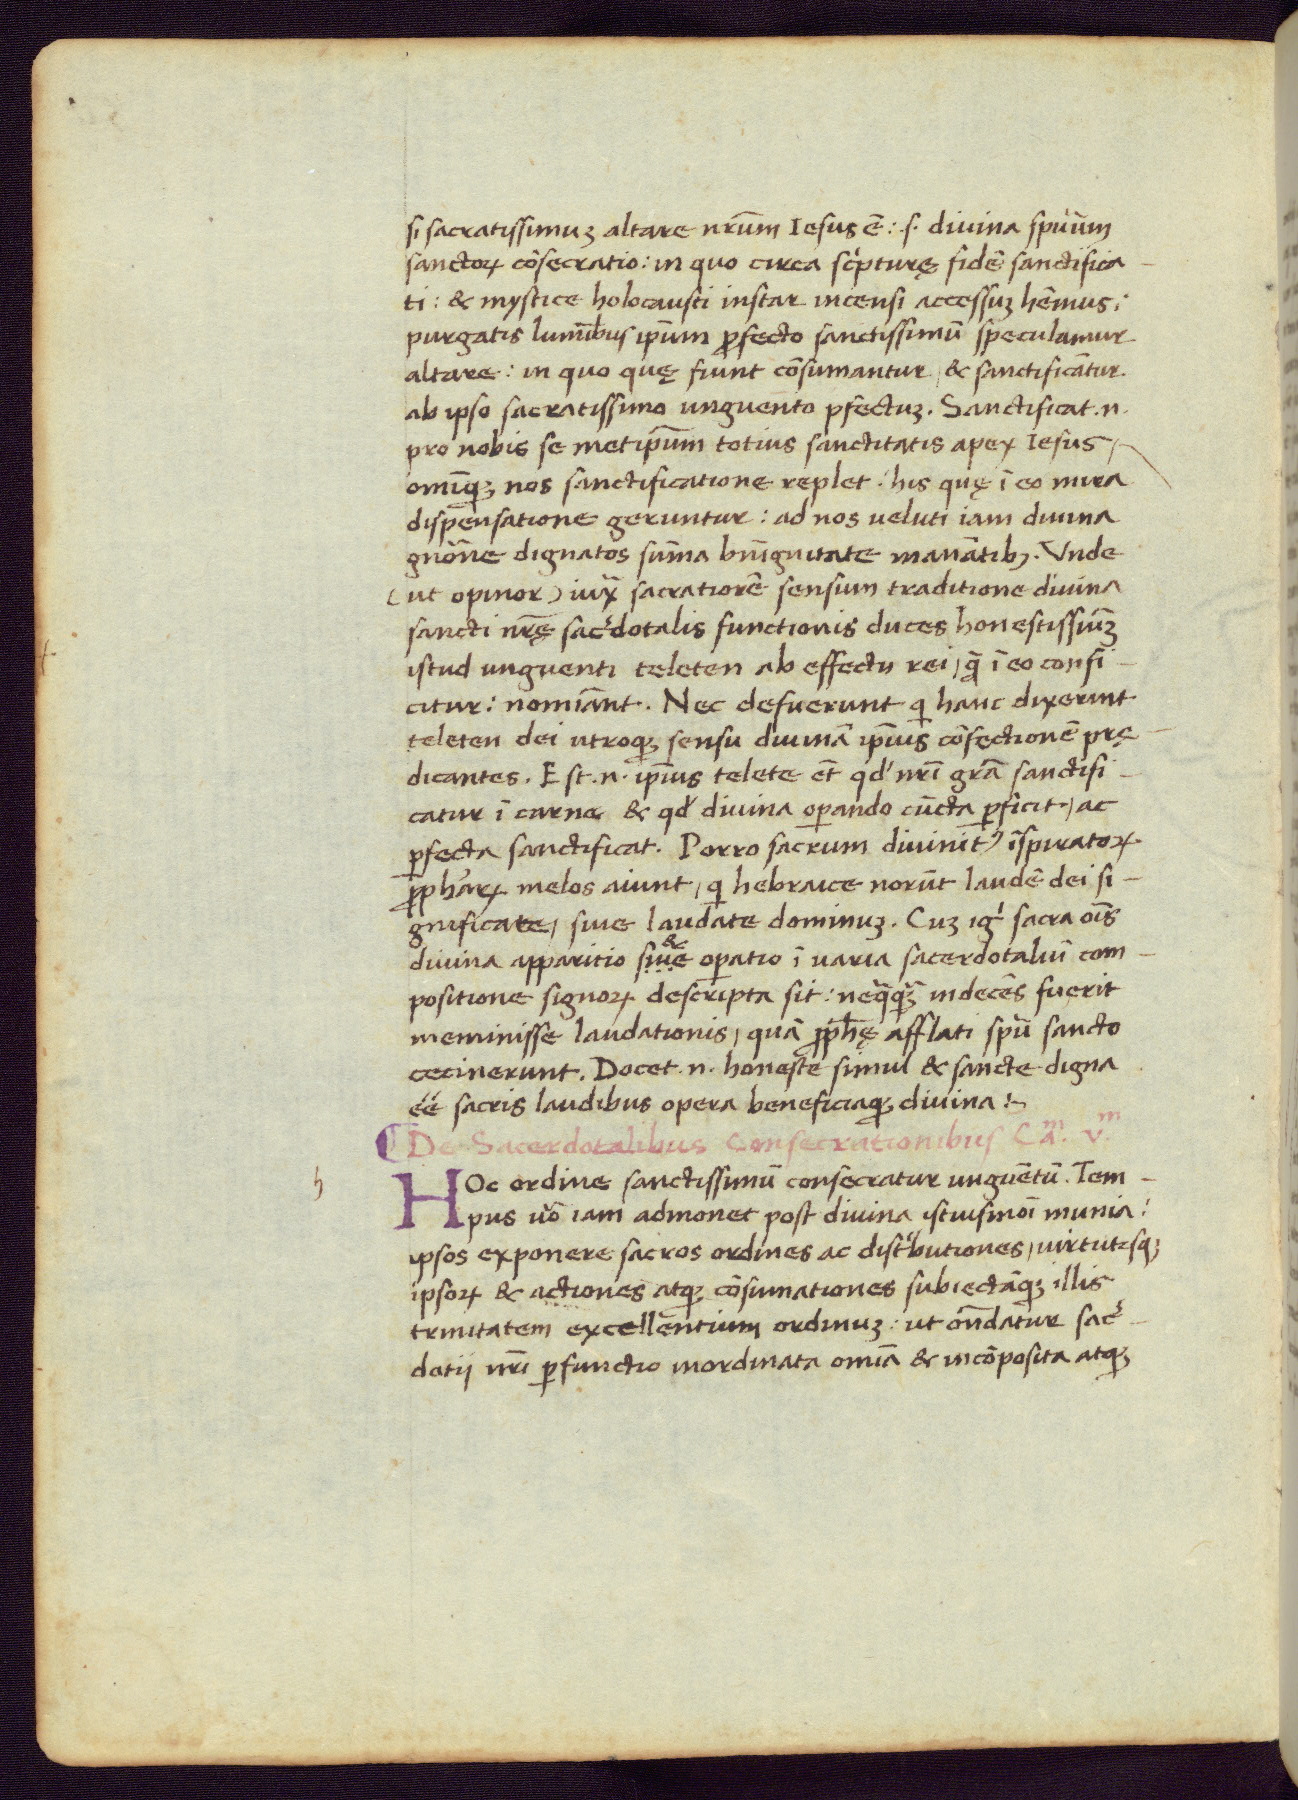 si sacratissimuꝫ altare nr̄um Iesus ē: .s. divina spũum
sanctoꝝ cōsecratio: in quo circa sc̓pturę fidē sanctifica-
ti: & mystice holocausti instar incensi accessuꝫ hēmus:
purgatis lumīb̄us ip̄um ꝓfecto sanctissimū speculamur
altare: in quo quę fiunt cōsumantur, & sanctificātur
ab ipso sacratissimo unguento pfectuꝫ. Sanctificat .n.
pro nobis se metip̄um totius sanctitatis apex Iesus,
omīqꝫ nos sanctificatione replet. his quę ī eo mira
dispensatione geruntur: ad nos veluti iam divina
gn̄ōne dignatos sum̄a bnīgnitate manātibꝫ. Vnde
(ut opinor) iux̄ sacratiorē sensum traditione divina
sancti nr̄ę sac̓dotalis functionis duces honestissiūꝫ
istud unguenti teleten ab effectu rei, q̄ ī eo confi-
citur: nomīant. Nec defuerunt qͥ hanc dixerint
teleten dei utroqꝫ sensu divinā ip̄ius cōfectionē prę-
dicantes. Est .n. ip̄ius telete et̄ qd̓ nr̄i gr̄a sanctifi-
catur ī carne & qd̓ divina oꝑando cūcta ꝑficit, ac
ꝑfecta sanctificat. Porro sacrum divinit᾿ īspiratoꝝ
ꝓph̓aꝝ melos aiunt, qͥ hebraice norūt laudē dei si-
gnificate, sive laudate dominuꝫ. Cuꝫ igͥ sacra oīs
divina apparitio sive & oꝑatio ī varia sacerdotaliū com-
positione signoꝝ descripta sit: neq̄qꝫ indecēs fuerit
meminisse laudationis, quā ꝓph̄ę afflati spū sancto
cecinerunt. Docet .n. honeste simul & sancte digna
éé sacris laudibus opera beneficiaqꝫ divina:~
¶ De Sacerdotalibus Consecrationibus Ca.ᵐ v.ᵐ
HOc ordine sanctissimū consecratur unguētū. Tem-
pus ūo iam admonet post divina istiusmōi munia:
ipsos exponere sacros ordines ac distͥbutiones, virtutesqꝫ
ipsoꝝ & actiones atqꝫ cōsumationes subiectāqꝫ illis
trinitatem excellentium ordinuꝫ: ut on̄datur sac̓-
dotij nr̄i ꝑfunctio inordinata omīa & incōposita atqꝫ